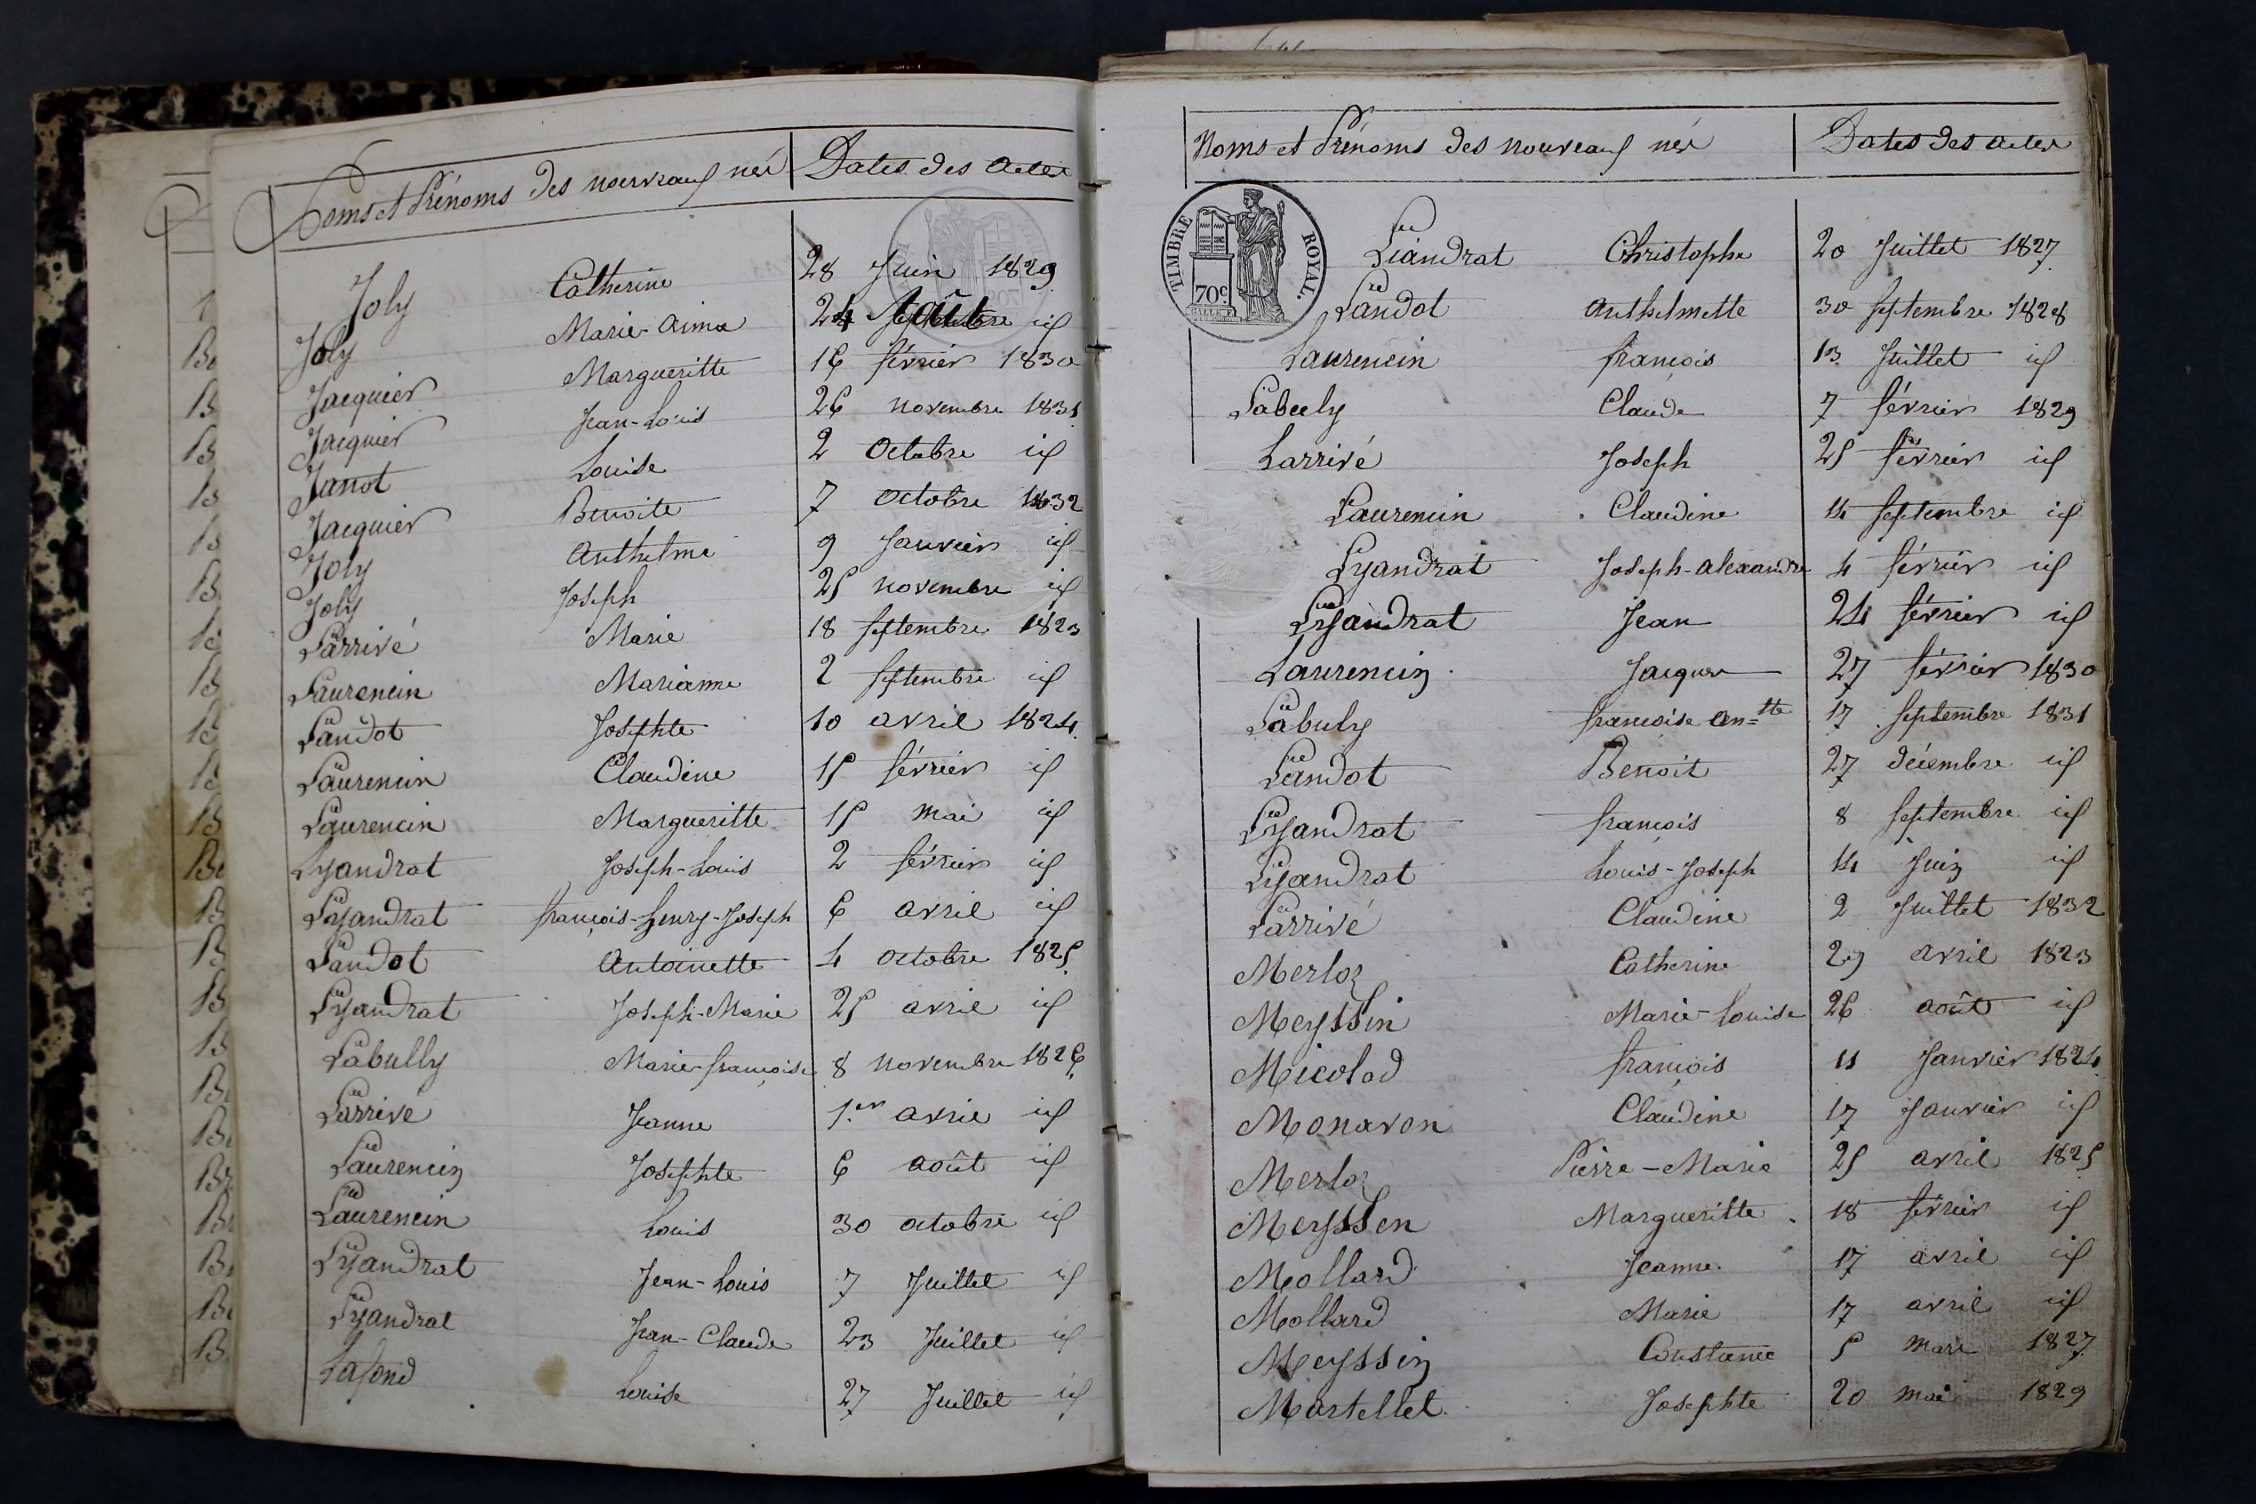 Noms et Prénoms des nouveaux nés Dates des actes
Joly Catherine 28 Juin 1829
Joly Marie-Aimée 24 août id
Jacquier Margueritte 16 février 1830
Jacquier Jean-Louis 26 novembre 1831
Janot Louise 2 Octobre id
Jacquier Benoite 7 octobre 1832
Joly Anthelme 9 Janvier id
Joly Joseph 25 novembre id
Larrivé Marie 18 septembre 1823
Laurencin Marianne 2 septembre id
Landot Josephte 10 avril 1824
Laurencin Claudine 15 février id
Laurencin Margueritte 15 mai id
Lyandrat Joseph-Louis 2 février id
Lyandrat françois-henry-Joseph 6 avril id
Landot Antoinette 4 octobre 1825
Lyandrat Joseph-Marie 25 avril id
Labully Marie-françoise 8 novembre 1826
Larrivé Jeanne 1.er avril id
Laurencin Josephte 6 août id
Laurencin Louis 30 octobre id
Lyandrat Jean-Louis 7 Juillet id
Lyandrat Jean-Claude 23 Juillet id
Lafond Louise 27 Juillet id
Noms et Prénoms des nouveaux nés Dates des actes
TIMBRE ROYAL.
70c
Liandrat Christophe 20 Juillet 1827
Landot Anthelmette 30 septembre 1828
Laurencin françois 13 Juillet id
Labuly Claude 7 février 1829
Larrivé Joseph 25 février id
Laurencin Claudine 14 septembre id
Lyandrat Joseph-alexandre 4 février id
Lyandrat Jean 24 février id
Laurencin Jacques 27 février 1830
Labuly françoise an=tte 17 septembre 1831
Landot Benoit 27 décembre id
Lyandrat françois 8 septembre id
Lyandrat Louis-Joseph 14 Juin id
Larrivé Claudine 2 Juillet 1832
Merloz Catherine 29 avril 1823
Meyssin Marie-Louise 26 août id
Micolod françois 11 Janvier 1824
Monavon Claudine 17 Janvier id
Merloz Pierre-Marie 25 avril 1825
Meyssen Margueritte 18 février id
Mollard Jeanne 17 avril id
Mollard Marie 17 avril id
Meyssin Constance 5 mars 1827
Martellet Josephte 20 mai 1829